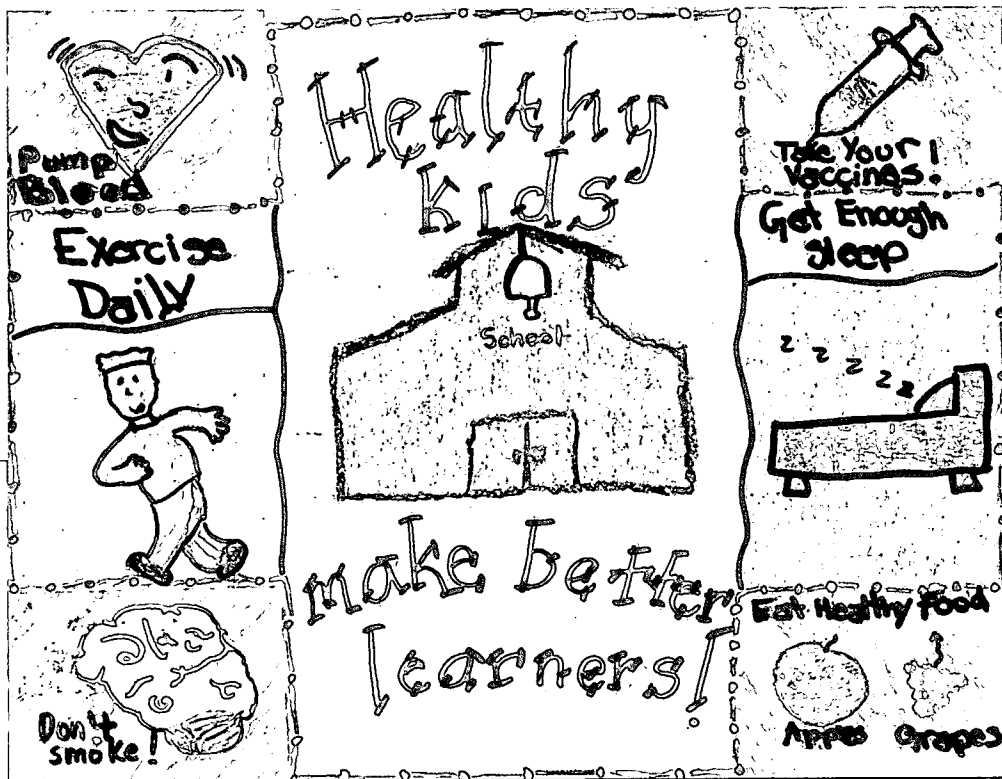 Pump
Blood
Exercise
Daily
Don't
smoke!
Healthy
kids
School
make better
learners!
Take Your
Vaccines!
Get Enough
Sleep
z z z z z
Eat Healthy Food
Apples Grapes